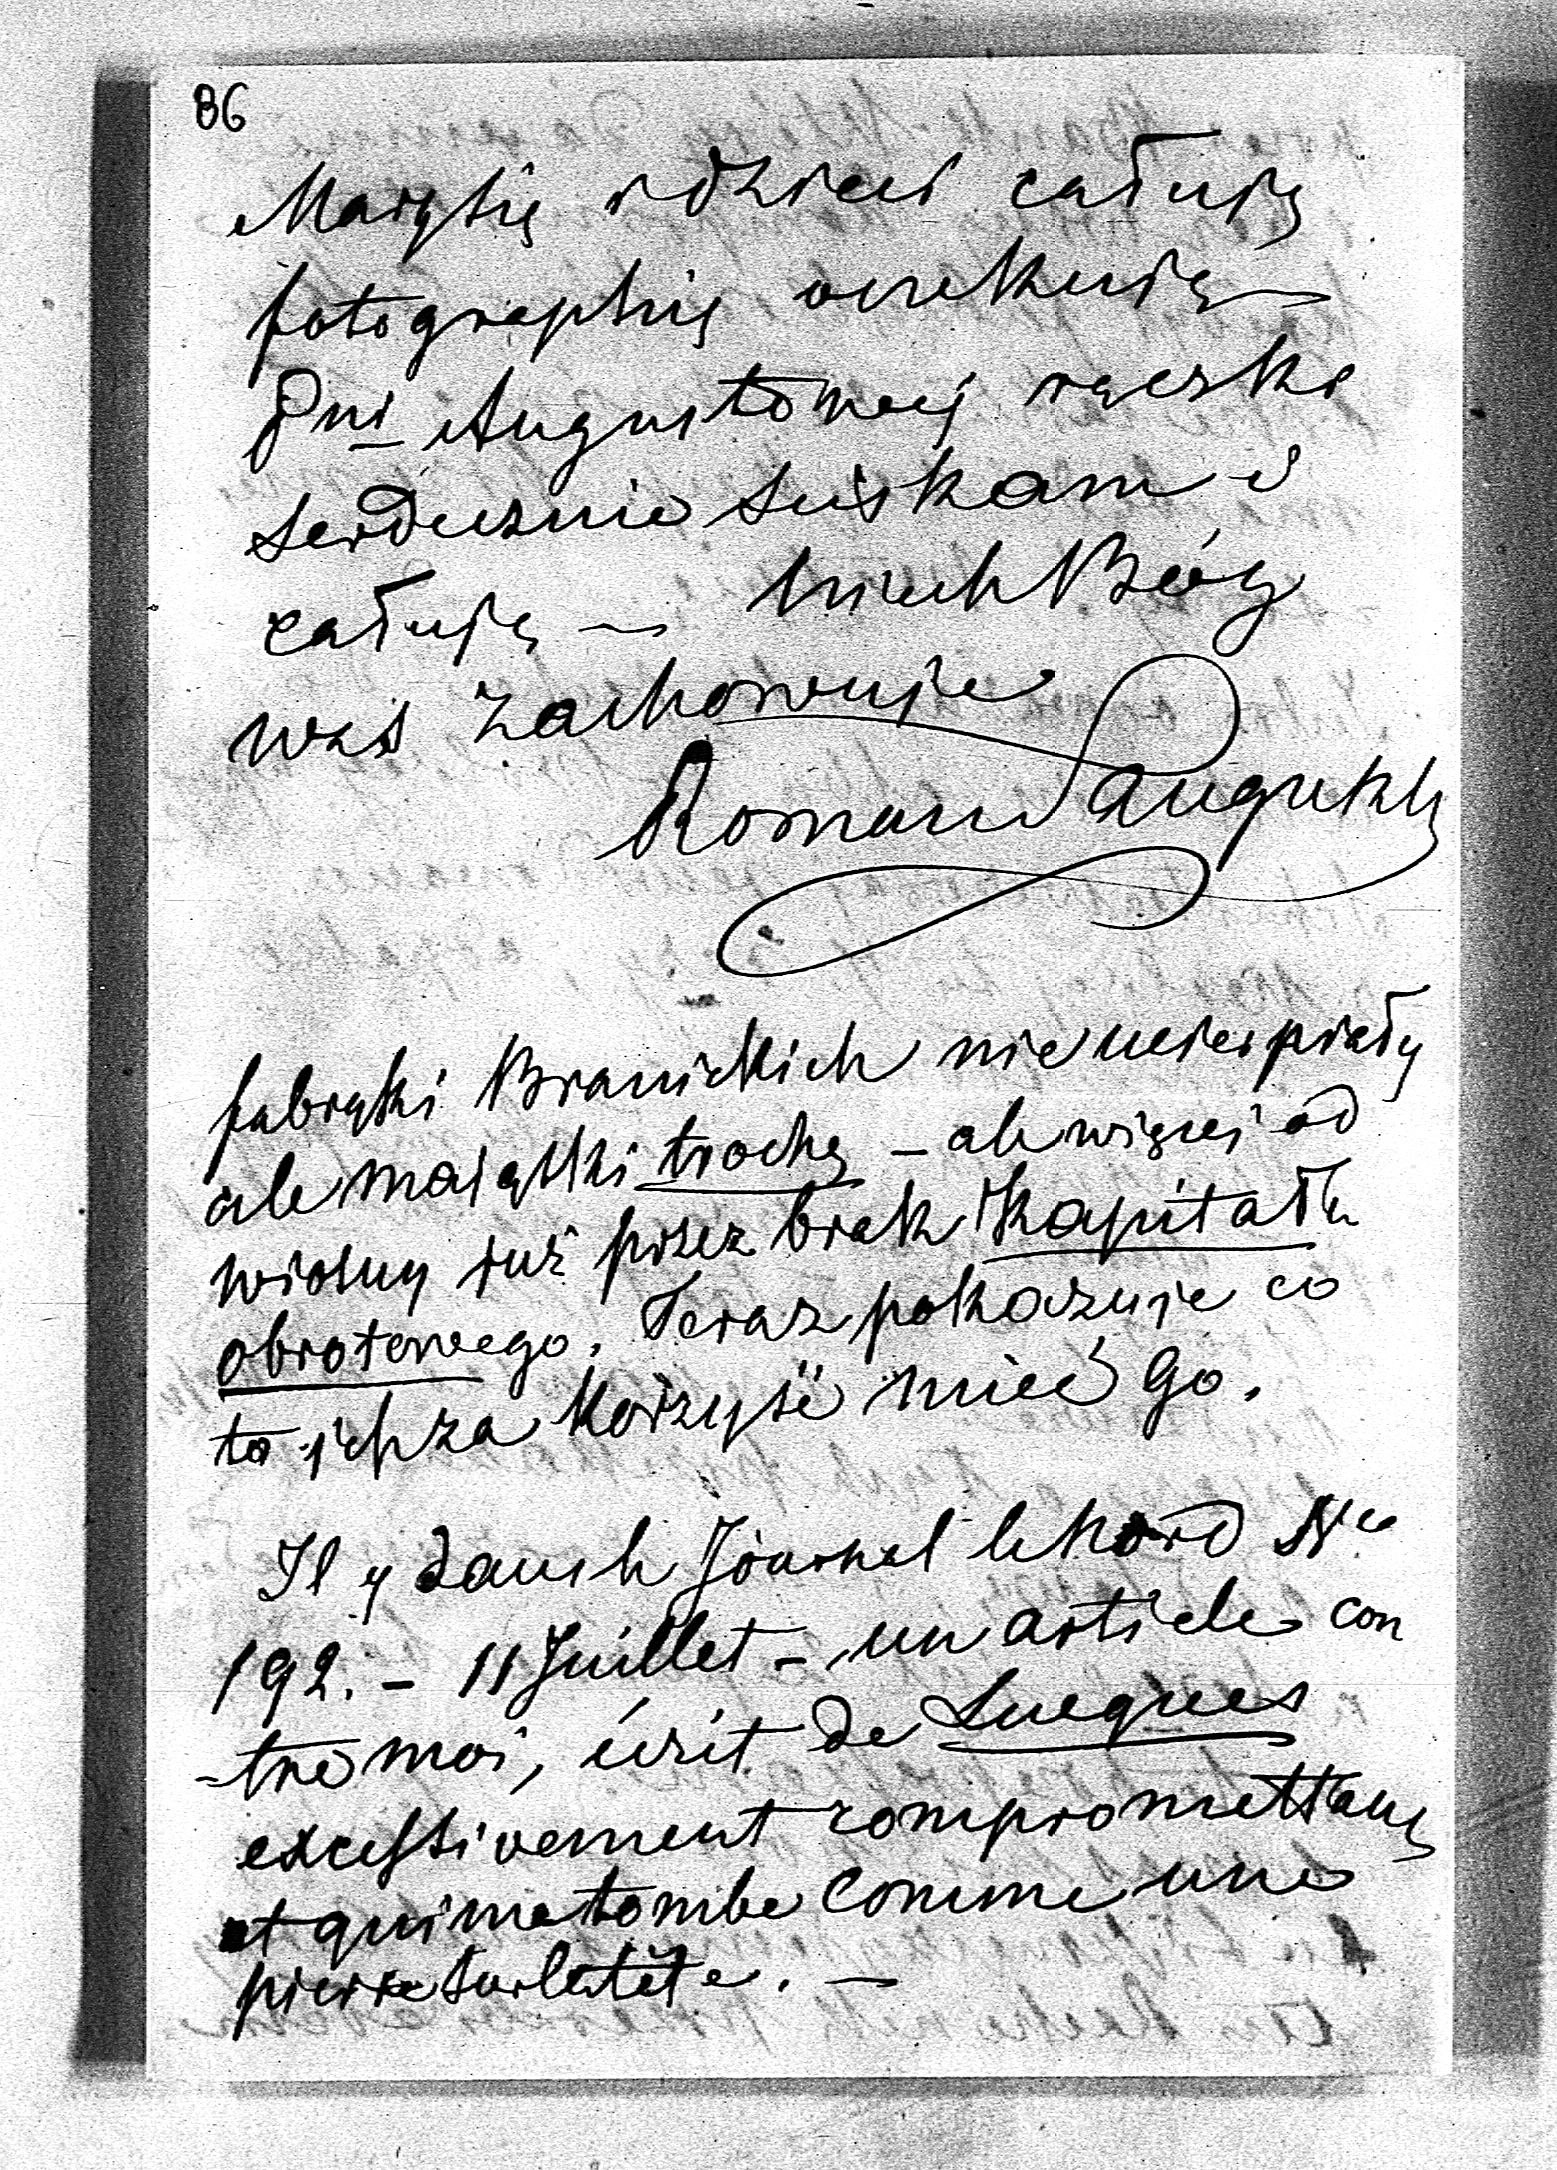 86
Marysię i dzieci całuję
fotographię oczekuję —
Pni Augustowej rączki
serdecznie sciskam i
całuję — niech Bóg
was zachowuje
Roman Sanguszko
fabryki Branickich nie ucierpiały
ale majątki trochę – ale więcej od
wiosny już przez brak Kapitału
obrotowego. Teraz pokazuje co
to ich za korzyść mieć Go.
Il y dans le Journal le Nord No
192. – 11 Juillet – un article con
-tre moi, écrit de Lucques
excessivement compromettant
et qui me tombe comme une
pierre sur la tête. —